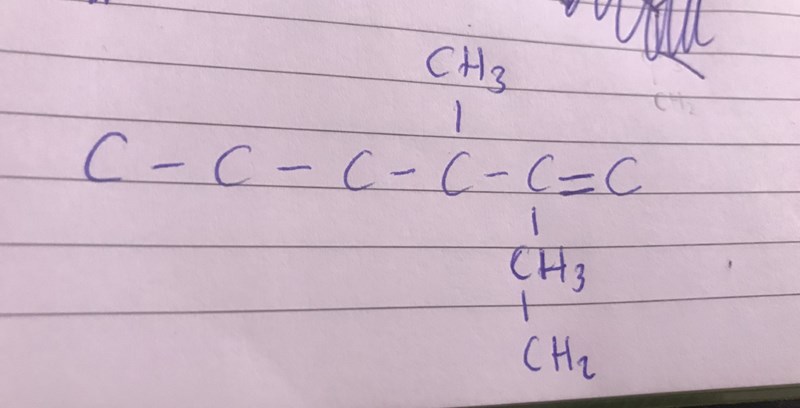 CH3
C - C - C - C - C = C
CH3
CH2